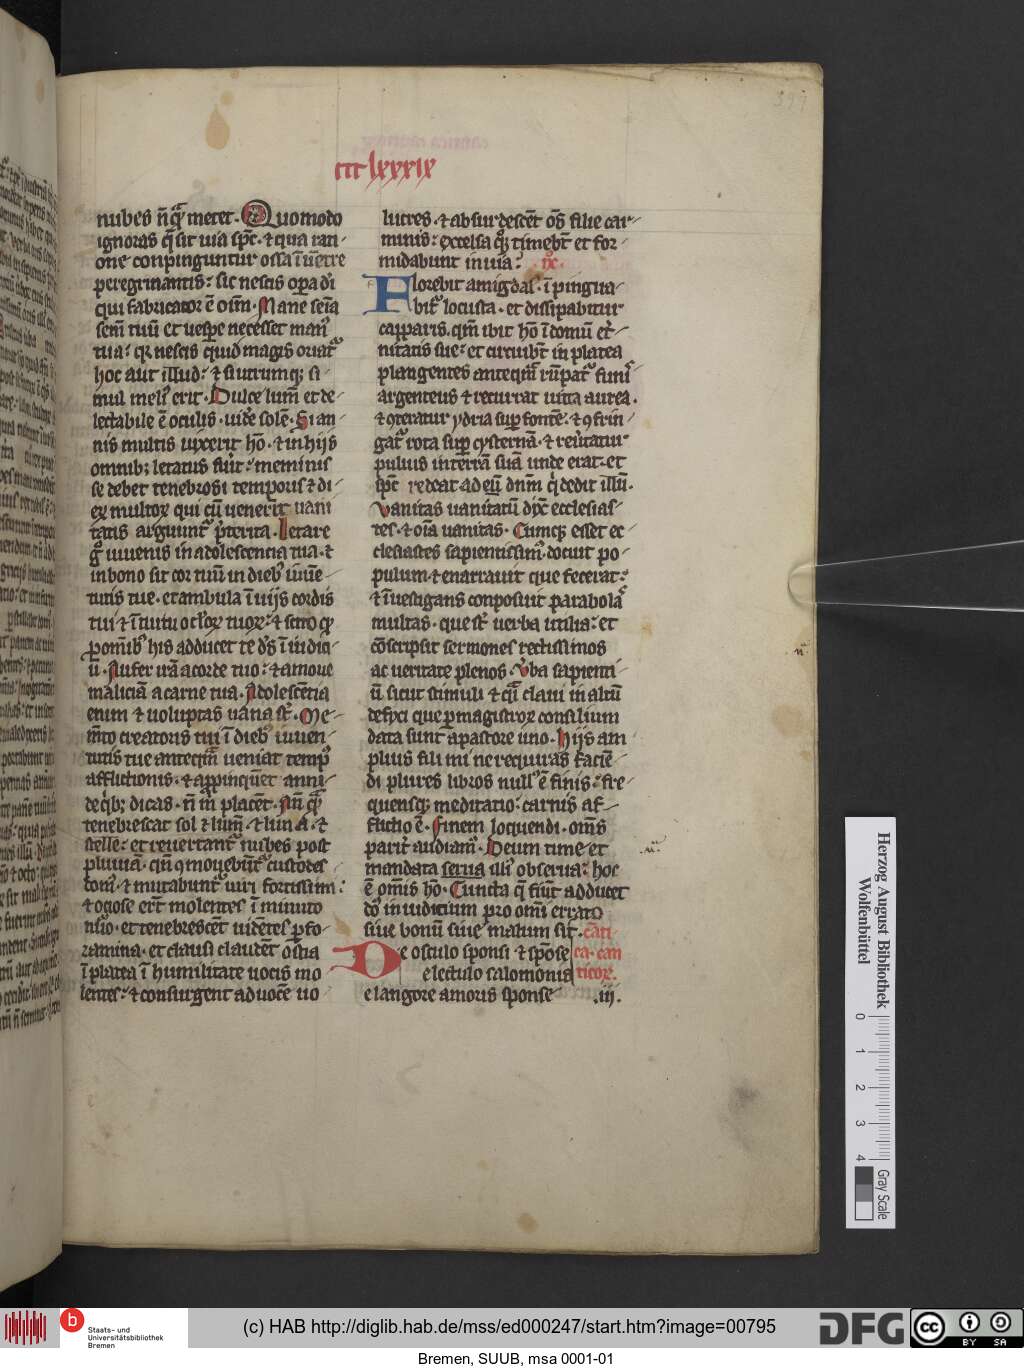 ccc lxxxix
nubes nq̄ metet. Quomodo
ignoras q̄ sit uia sp̄c. ⁊ qua rati
one conpinguntur ossa ī uētre
peregrinantis: sic nescis opa di
qui fabricator ē oīm. Mane seīa
sem̄ tuū et uespe ne cesset man᷒
tua: qr nescis quid magis oriat᷑
hoc aut illud: ⁊ si utrumqꝫ si
mul meli᷒ erit. Dulce lum̄ et de
lectabile ē oculis. uid'e solē. Si an
nis multis uixerit hō. ⁊ in hijs
omnibꝫ letatus fu'it: meminis
se debet tenebrosi temporis ⁊ di
eꝝ multoꝝ qui cū uenerit uani
tatis arguunt᷑ p̄terita. Letare
g̊ iuuenis in adolescencia tua. ⁊
in bono sit cor tuū in dieb᷒ iuuē
tutis tue. et ambula ī uijs cordis
tui ⁊ ī tuitu oc'loꝝ tuoꝝ: ⁊ scito qꝫ
ꝓ om̄ib᷒ his adducet te d's ī iudici
ū. Aufer irā a corde tuo: ⁊ amoue
maliciā a carne tua. Adolescētia
enim ⁊ uoluptas uana st̄. Me
m̄to creatoris tui ī dieb᷒ iuuen
tutis tue anteqm̄ ueniat temp᷒
afflictionis. ⁊ appinquēt anni
de q'bꝫ dicas. n̄ m̄ placēt. An̄ q̄
tenebrescat sol ⁊ lum̄. ⁊ luna. ⁊
stelle: et reuertant᷑ nubes post
pluuiā. qn̄ ꝯmouebūt᷑ custodes
dom᷒. ⁊ mutabunt᷑ uiri fortissimi:
⁊ ociose er̄t molentes ī minuto
nūo. et tenebrescēt uidētes ꝑ fo
ramina. et clausi claudēt ostia
ī platea ī humilitate uocis mo
lentes: ⁊ consurgent ad uocē uo
lucres. ⁊ absurdescēt oēs filie car
minis: excelsa qꝫ timebt̄ et for
midabunt in uia:
Florebit amigdal᷒. ī pingua
bit᷑ locusta. et dissipabitur
capparis. qm̄ ibit hō ī domū et'
nitatis sue: et circuibt̄ in platea
plangentes anteqm̄ rūpat᷑ funi᷒
argenteus ⁊ recurrat uitta aurea.
⁊ ꝯteratur ydria sup fontē. ⁊ ꝯfrin
gat᷑ rota sup cysternā. ⁊ reu'tatur
puluis in terrā suā unde erat. et
sp̄c redeat ad eū dnm̄ q' dedit illū.
Vanitas uanitatū dix̄ ecclesias
tes. ⁊ oīa uanitas. Cumqꝫ esset ec
clesiastes sapientissim᷒ docuit po
pulum. ⁊ enarrauit que fecerat:
⁊ īuestigans conposuit parabolas
multas. que siuit uerba utilia: et
cōscripsit sermones rectissimos
ac ueritate plenos. V'ba sapienti
ū sicut stimuli ⁊ q̄ claui in altū
defixi que p magistroꝝ consilium
data sunt a pastore uno. Hijs am
plius fili mi ne requiras. Faciē
di plures libros null᷒ ē finis: fre
quensqꝫ meditatio: carnis af
flictio ē. Finem loquendi. om̄s
parit' audiam᷒. Deum time et
mandata serua illi᷒ obserua: hoc
ē om̄is hō. Cuncta q̄ fiūt adducet
do᷒ in iudicium pro om̄i errato
siue bonū siue malum sit. canti
De osculo sponsi ⁊ spōse ca. can
e lectulo salomonis ticoꝝ.
e langore amoris sponse .iij.
Herzog August Bibliothek
Wolfenbüttel
0 1 2 3 4
Gray Scale
b Staats- und
Universitätsbibliothek
Bremen
(c) HAB http://diglib.hab.de/mss/ed000247/start.htm?image=00795
DFG
cc BY SA
Bremen, SUUB, msa 0001-01